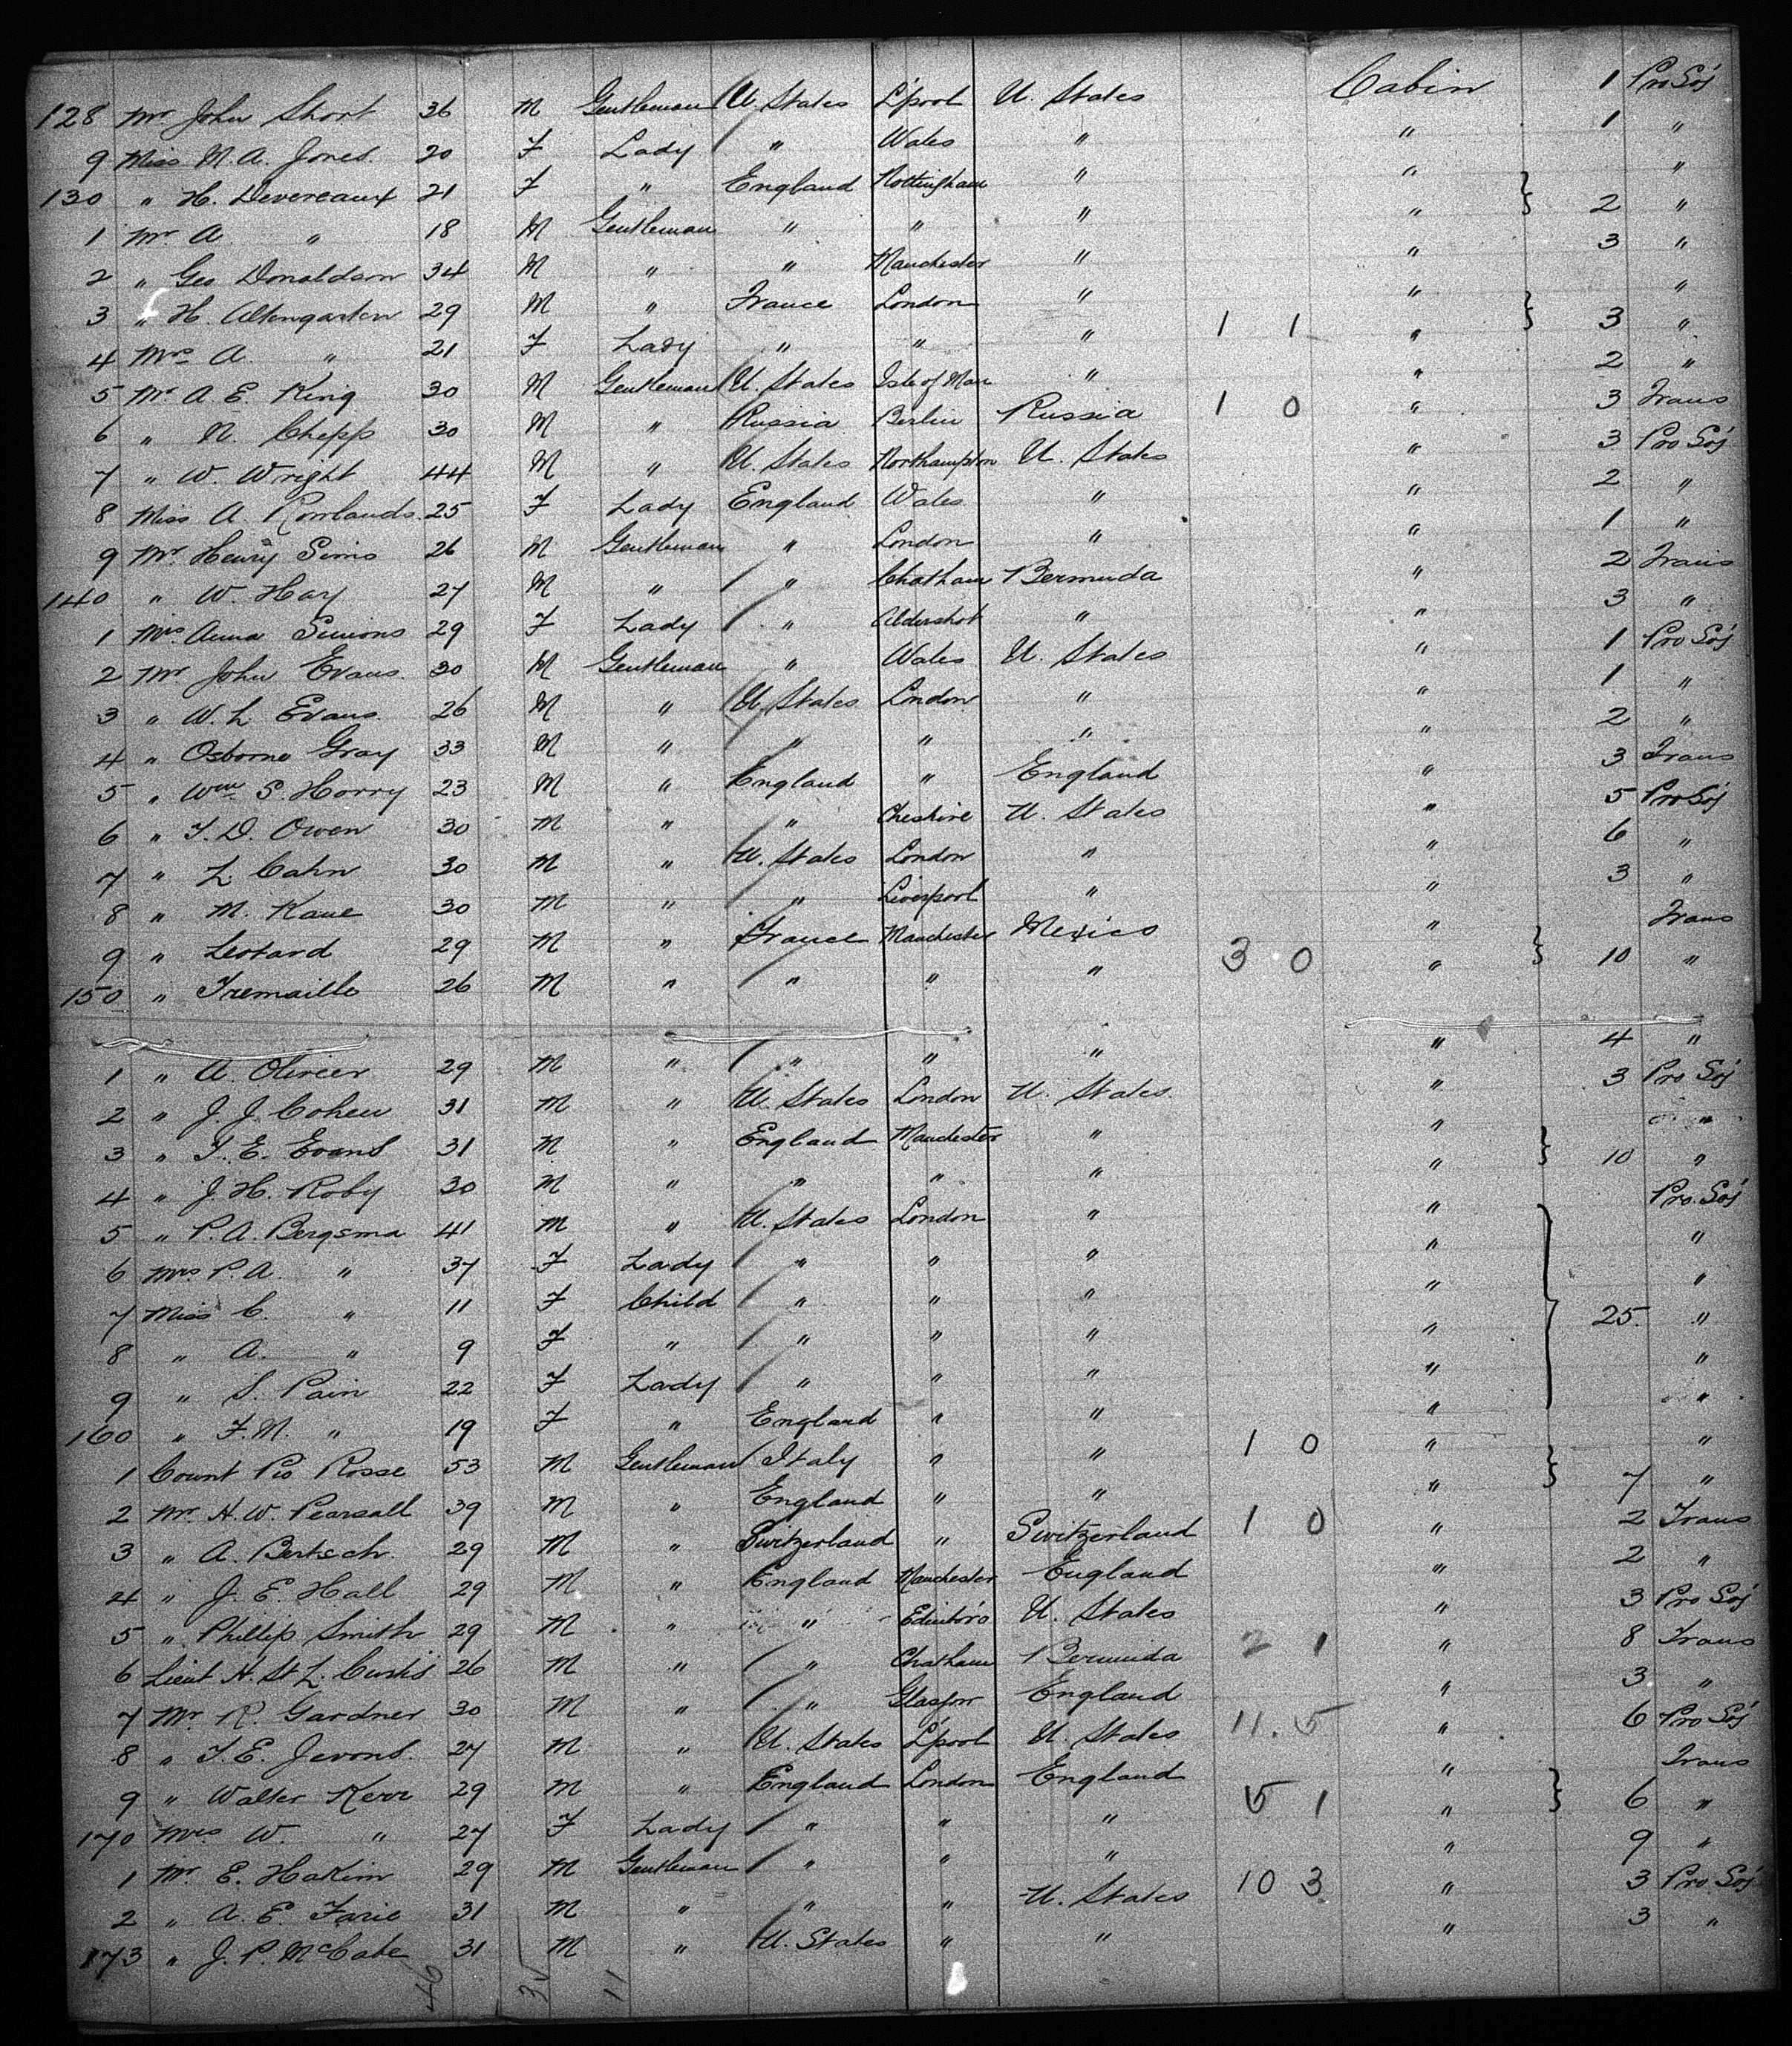 128 Mr John Short 36 M Gentleman U. States L'pool U. States Cabin 1 Pro Soj
9 Miss M. A. Jones 20 F Lady " Wales " " 1 "
130 " H. Devereaux 21 F " England Nottingham " " "
1 Mr A. " 18 M Gentleman " " " " } 2 "
2 " Geo Donaldson 34 M " " Manchester " " 3 "
3 " H. Altengarten 29 M " France London " " "
4 Mrs A. " 21 F Lady " " " 1 1 " } 3 "
5 Mr A. E. King 30 M Gentleman U. States Isle of Man " " 2 "
6 " N. Chepp 30 M " Russia Berlin Russia 1 0 " 3 Trans
7 " W. Wright 44 M " U. States Northampton U. States " 3 Pro Soj
8 Miss A. Rowlands 25 F Lady England Wales " " 2 "
9 Mr Henry Simis 26 M Gentleman " London " " 1 "
140 " W. Hay 27 M " " Chatham Bermuda " 2 Trans
1 Mrs Anna Simons 29 F Lady " Aldershot " " 3 "
2 Mr John Evans 30 M Gentleman " Wales U. States " 1 Pro Soj
3 " W. L. Evans 26 M " U. States London " " 1 "
4 " Osborne Gray 33 M " " " " " 2 "
5 " Wm S. Horry 23 M " England " England " 3 Trans
6 " T. D. Owen 30 M " " Cheshire U. States " 5 Pro Soj
7 " L. Cahn 30 M " U. States London " " 6 "
8 " M. Kane 30 M " " Liverpool " " 3 "
9 " Leotard 29 M " France Manchester Mexico " Trans
150 " Tremaille 26 M " " " " 3 0 " } 10 "
1 " A. Olivier 29 M " " " " " 4 "
2 " J. J. Cohen 31 M " U. States London U. States " 3 Pro Soj
3 " T. E. Evans 31 M " England Manchester " " "
4 " J. H. Roby 30 M " " " " " } 10 "
5 " P. A. Bergsma 41 M " U. States London " " Pro. Soj
6 Mrs P. A. " 37 F Lady " " " " "
7 Miss C. " 11 F Child " " " " "
8 " A. " 9 F " " " " " } 25. "
9 " S. Pain 22 F Lady " " " " "
160 " F. M. " 19 F " England " " " "
1 Count Pio Rosse 53 M Gentleman Italy " " 1 0 " "
2 Mr. H. W. Pearsall 39 M " England " " " } 7 "
3 " A. Bertsch 29 M " Switzerland " Switzerland 1 0 " 2 Trans
4 " J. E. Hall 29 M " England Manchester England " 2 "
5 " Phillip Smith 29 M " " Edinboro U. States " 3 Pro Soj
6 Lieut H. St L. Curtis 26 M " " Chatham Bermuda 2 1 " 8 Trans
7 Mr. R. Gardner 30 M " " Glasgow England " 3 "
8 " T. E. Jevons 27 M " U. States L'pool U. States 11. 5 " 6 Pro Soj
9 " Walter Kerr 29 M " England London England " Trans
170 Mrs W. " 27 F Lady " " " 5 1 " } 6 "
1 Mr. E. Hakim 29 M Gentleman " " " " 9 "
2 " A. E. Farie 31 M " " " U. States 10 3 " 3 Pro. Soj
173 " J. P. McCabe 31 M " U. States " " " 3 "
46 35 11